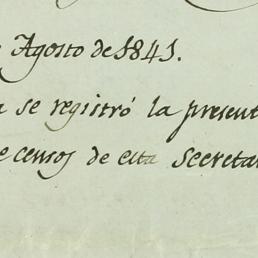 Agosto de 1841.
se registró la present
e censos de esta Secreta